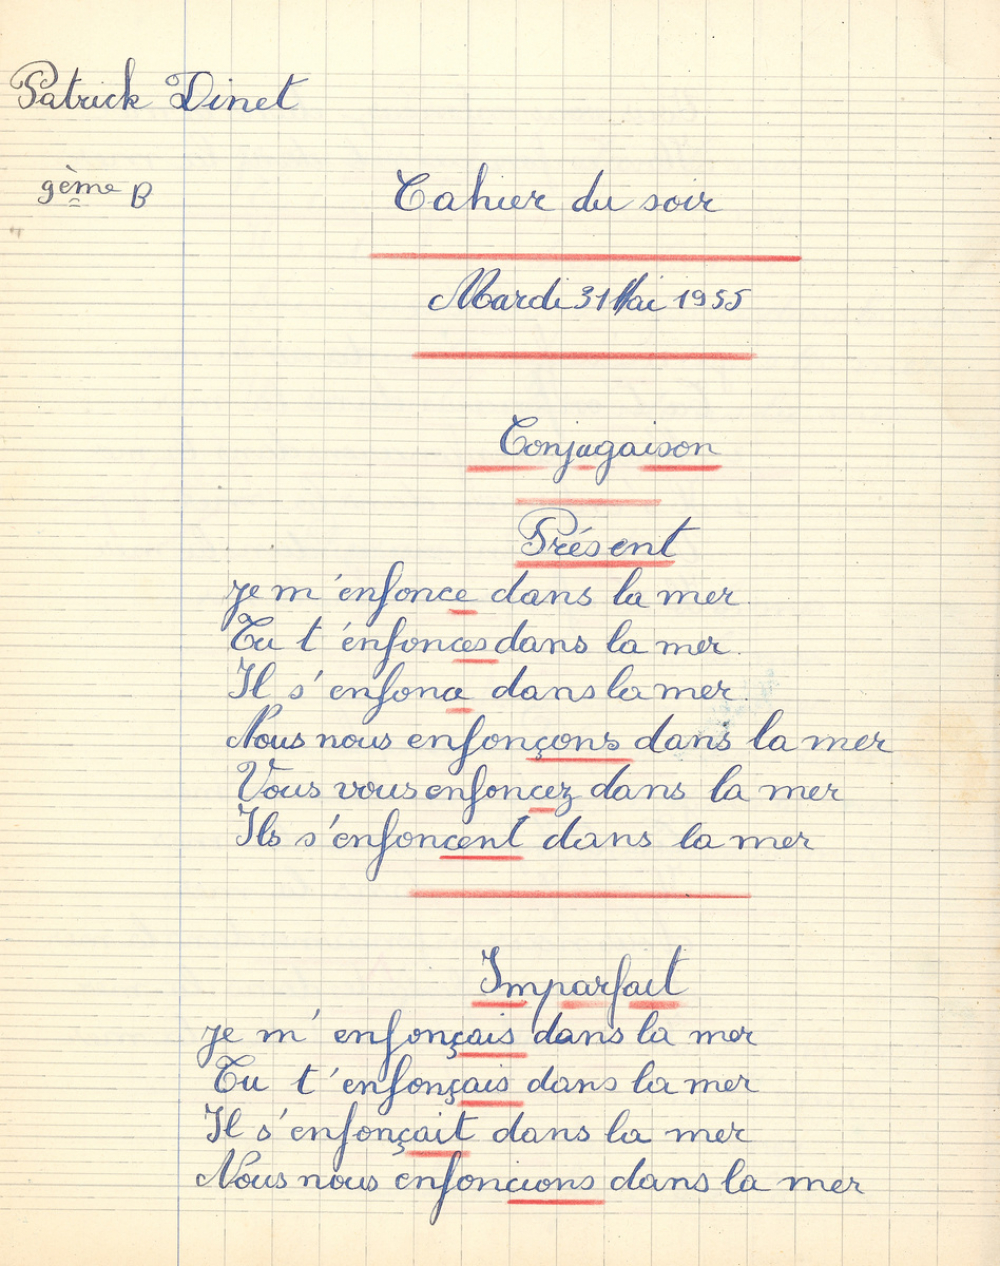 Patrick Dinet
9ème B
Cahier du soir
Mardi 31 Mai 1955
Conjugaison
Présent
Je m'enfonce dans la mer.
Tu t'énfonces dans la mer.
Il s'enfonce dans la mer.
Nous nous enfonçons dans la mer
Vous vous enfoncez dans la mer
Ils s'enfoncent dans la mer
Imparfait
Je m'enfonçais dans la mer
Tu t'enfonçais dans la mer
Il s'enfonçait dans la mer
Nous nous enfoncions dans la mer